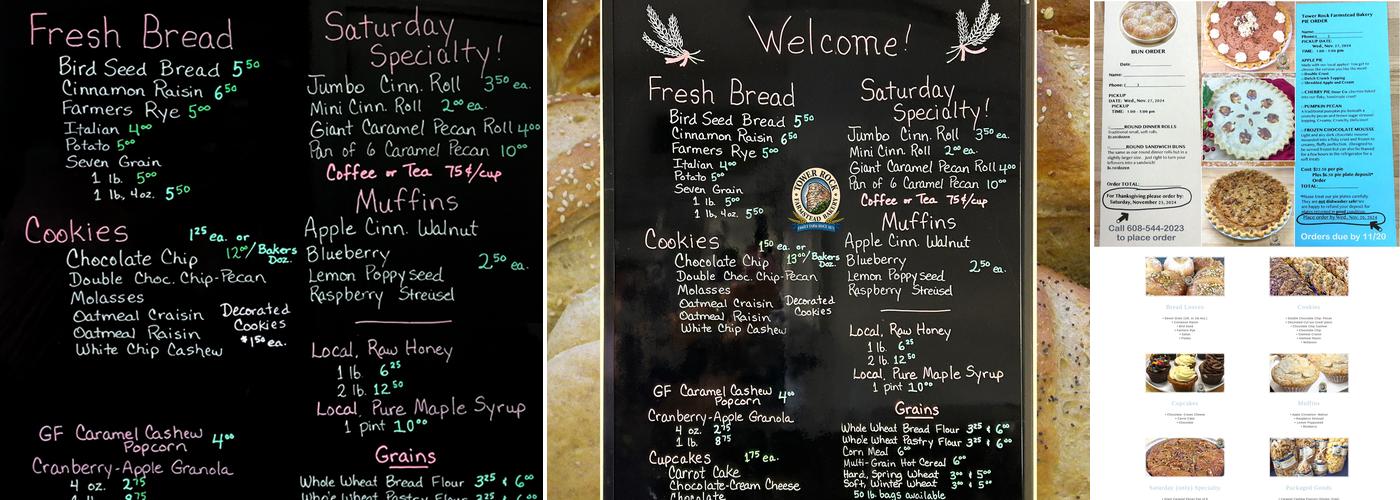 Fresh Bread
Bird Seed Bread 5.50
Cinnamon Raisin 6.50
Farmers Rye 5.00
Italian 4.00
Potato 5.00
Seven Grain
1 lb. 5.00
1 lb, 4oz. 5.50
Cookies 1.25 ea. or
12.00/Bakers Doz.
Chocolate Chip
Double Choc. Chip-Pecan
Molasses
Oatmeal Craisin
Oatmeal Raisin
White Chip Cashew
Decorated
Cookies
$1.50 ea.
GF Caramel Cashew
Popcorn 4.00
Cranberry-Apple Granola
4 oz. 2.75
1 lb. 8.75
Saturday
Specialty!
Jumbo Cinn. Roll 3.50 ea.
Mini Cinn. Roll 2.00 ea.
Giant Caramel Pecan Roll 4.00
Pan of 6 Caramel Pecan 10.00
Coffee or Tea 75¢/cup
Muffins
Apple Cinn. Walnut
Blueberry
Lemon Poppyseed
Raspberry Streusel
2.50 ea.
Local, Raw Honey
1 lb. 6.25
2 lb. 12.50
Local, Pure Maple Syrup
1 pint 10.00
Grains
Whole Wheat Bread Flour 3.25 & 6.00
Whole Wheat Pastry Flour 3.25 & 6.00
Welcome!
Fresh Bread
Bird Seed Bread 5.50
Cinnamon Raisin 6.50
Farmers Rye 5.00
Italian 4.00
Potato 5.00
Seven Grain
1 lb 5.00
1 lb, 4oz. 5.50
TOWER ROCK
FARMSTEAD BAKERY
Cookies 1.50 ea. or
13.00/Bakers Doz.
Chocolate Chip
Double Choc. Chip-Pecan
Molasses
Oatmeal Craisin
Oatmeal Raisin
White Chip Cashew
Decorated
Cookies
GF Caramel Cashew
Popcorn 4.00
Cranberry-Apple Granola
4 oz. 2.75
1 lb. 8.75
Cupcakes 1.75 ea.
Carrot Cake
Chocolate-Cream Cheese
Chocolate
Saturday
Specialty!
Jumbo Cinn. Roll 3.50 ea.
Mini Cinn. Roll 2.00 ea.
Giant Caramel Pecan Roll 4.00
Pan of 6 Caramel Pecan 10.00
Coffee or Tea 75¢/cup
Muffins
Apple Cinn. Walnut
Blueberry
Lemon Poppyseed
Raspberry Streusel
2.50 ea.
Local, Raw Honey
1 lb. 6.25
2 lb. 12.50
Local, Pure Maple Syrup
1 pint 10.00
Grains
Whole Wheat Bread Flour 3.25 & 6.00
Whole Wheat Pastry Flour 3.25 & 6.00
Corn Meal 6.00
Multi-Grain Hot Cereal 6.00
Hard, Spring Wheat 3.00 & 5.00
Soft, Winter Wheat 3.00 & 5.00
50 lb. bags available
BUN ORDER
Date
Name:
Phone: ( )
PICKUP
DATE: Wed, Nov. 27, 2024
TIME: 1:00 - 5:00 pm
ROUND DINNER ROLLS
Traditional small, soft rolls
ROUND SANDWICH BUNS
Order TOTAL:
For Thanksgiving please order by:
Saturday, November 23, 2024
Call 608-544-2023
to place order
Tower Rock Farmstead Bakery
PIE ORDER
Name
Phone:
PICKUP DATE:
Wed, Nov. 27, 2024
TIME: 1:00 - 5:00 pm
APPLE PIE
Double Crust
Dutch Crumb Topping
CHERRY PIE
PUMPKIN PECAN
FROZEN CHOCOLATE MOUSSE
Cost $22.50 per pie
Plus $6.50 pie plate deposit*
Order
TOTAL:
Place order by Wed. Nov. 20, 2024
Orders due by 11/20
Bread Loaves
Cookies
Cupcakes
Muffins
Saturday (only) Specialty
Packaged Goods